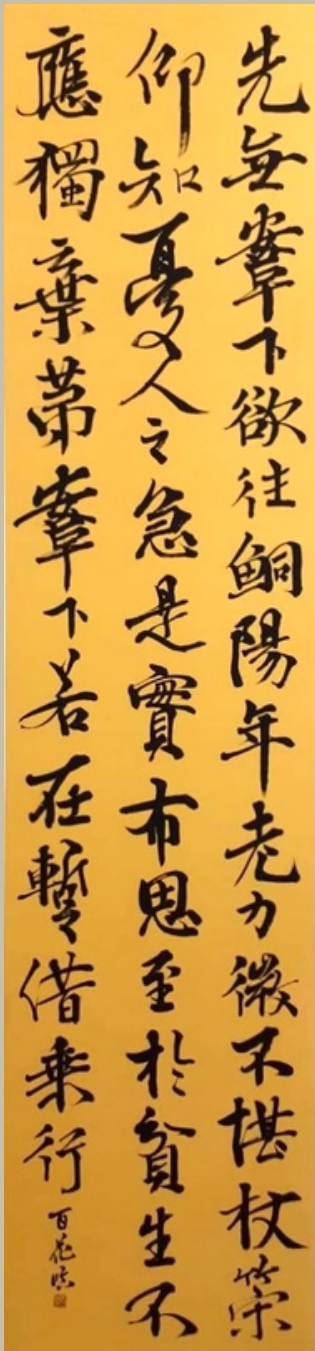 先無鞌下欲往鮦陽年老力微不堪杖策
仰知憂人之急是實布恩至於貧生不
應獨棄苐鞌下若在暫借乘行
百花